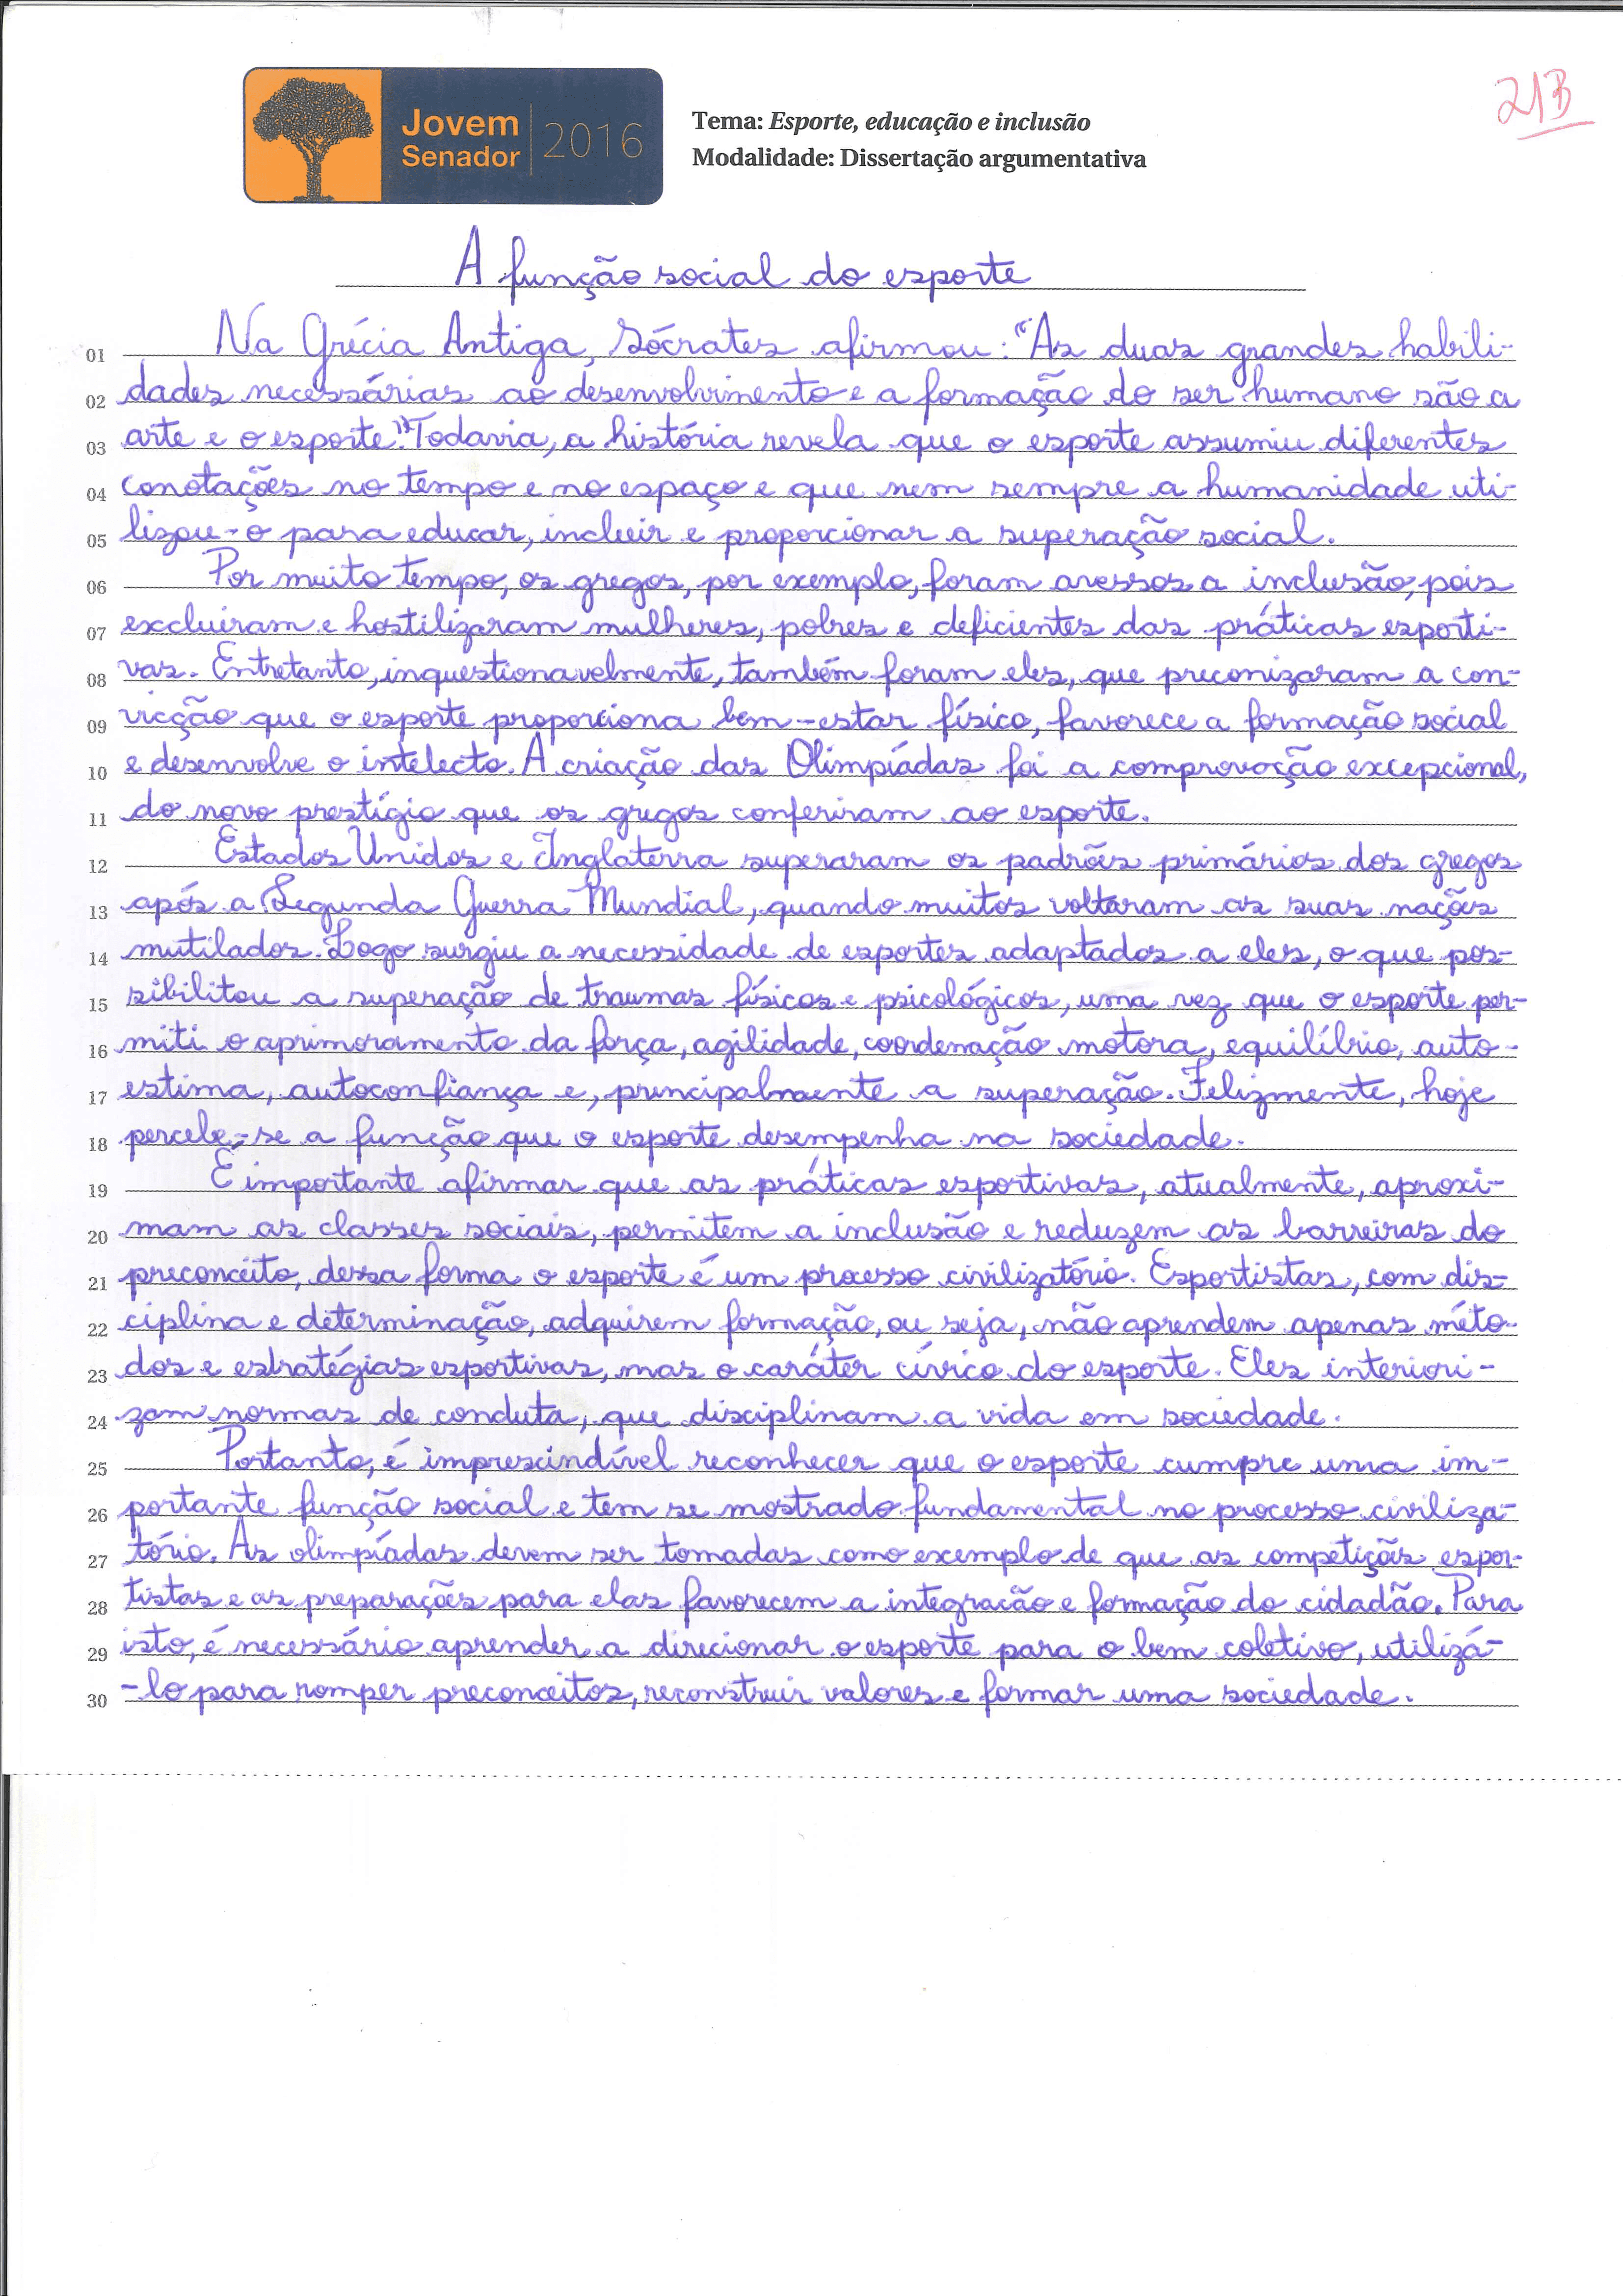 Jovem
Senador
2016
Tema: Esporte, educação e inclusão
Modalidade: Dissertação argumentativa
21B
A função social do esporte
01 Na Grécia Antiga, Sócrates afirmou: "As duas grandes habili-
02 dades necessárias ao desenvolvimento e a formação do ser humano são a
03 arte e o esporte". Todavia, a história revela que o esporte assumiu diferentes
04 conotações no tempo e no espaço e que nem sempre a humanidade uti-
05 lizou-o para educar, incluir e proporcionar a superação social.
06 Por muito tempo, os gregos, por exemplo, foram avessos a inclusão, pois
07 excluíram e hostilizaram mulheres, pobres e deficientes das práticas esporti-
08 vas. Entretanto, inquestionavelmente, também foram eles, que preconizaram a con-
09 vicção que o esporte proporciona bem-estar físico, favorece a formação social
10 e desenvolve o intelecto. A criação das Olimpíadas foi a comprovação excepcional,
11 do novo prestígio que os gregos conferiram ao esporte.
12 Estados Unidos e Inglaterra superaram os padrões primários dos gregos
13 após a Segunda Guerra Mundial, quando muitos voltaram as suas nações
14 mutilados. Logo surgiu a necessidade de esportes adaptados a eles, o que pos-
15 sibilitou a superação de traumas físicos e psicológicos, uma vez que o esporte per-
16 miti o aprimoramento da força, agilidade, coordenação motora, equilíbrio, auto-
17 estima, autoconfiança e, principalmente a superação. Felizmente, hoje
18 percebe-se a função que o esporte desempenha na sociedade.
19 É importante afirmar que as práticas esportivas, atualmente, aproxi-
20 mam as classes sociais, permitem a inclusão e reduzem as barreiras do
21 preconceito, dessa forma o esporte é um processo civilizatório. Esportistas, com dis-
22 ciplina e determinação, adquirem formação, ou seja, não aprendem apenas méto-
23 dos e estratégias esportivas, mas o caráter cívico do esporte. Eles interiori-
24 zam normas de conduta, que disciplinam a vida em sociedade.
25 Portanto, é imprescindível reconhecer que o esporte cumpre uma im-
26 portante função social e tem se mostrado fundamental no processo civiliza-
27 tório. As olimpíadas devem ser tomadas como exemplo de que as competições espor-
28 tistas e as preparações para elas favorecem a integração e formação do cidadão. Para
29 isto, é necessário aprender a direcionar o esporte para o bem coletivo, utilizá-
30 -lo para romper preconceitos, reconstruir valores e formar uma sociedade.